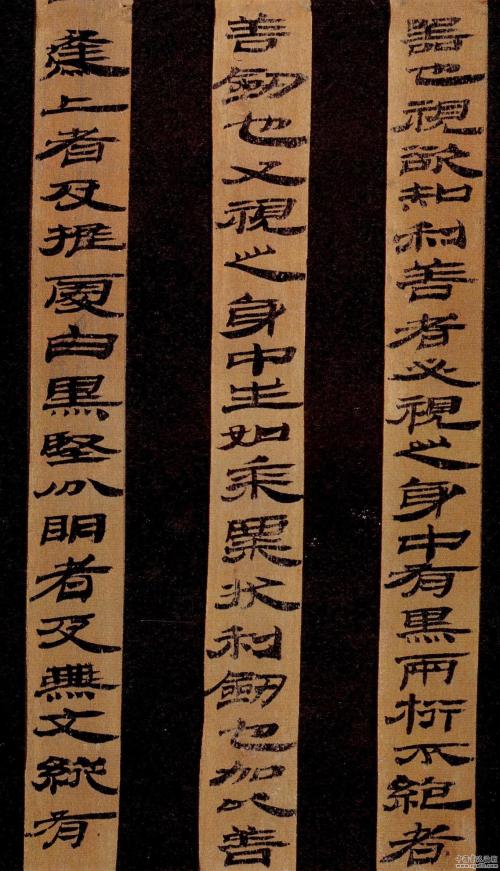 器也視欲知利善者必視之身中有黑兩桁不絕者
善劍也又視之身中生如黍粟狀利劍也加以善
逢上者及推處白黑堅分明者及無文縱有